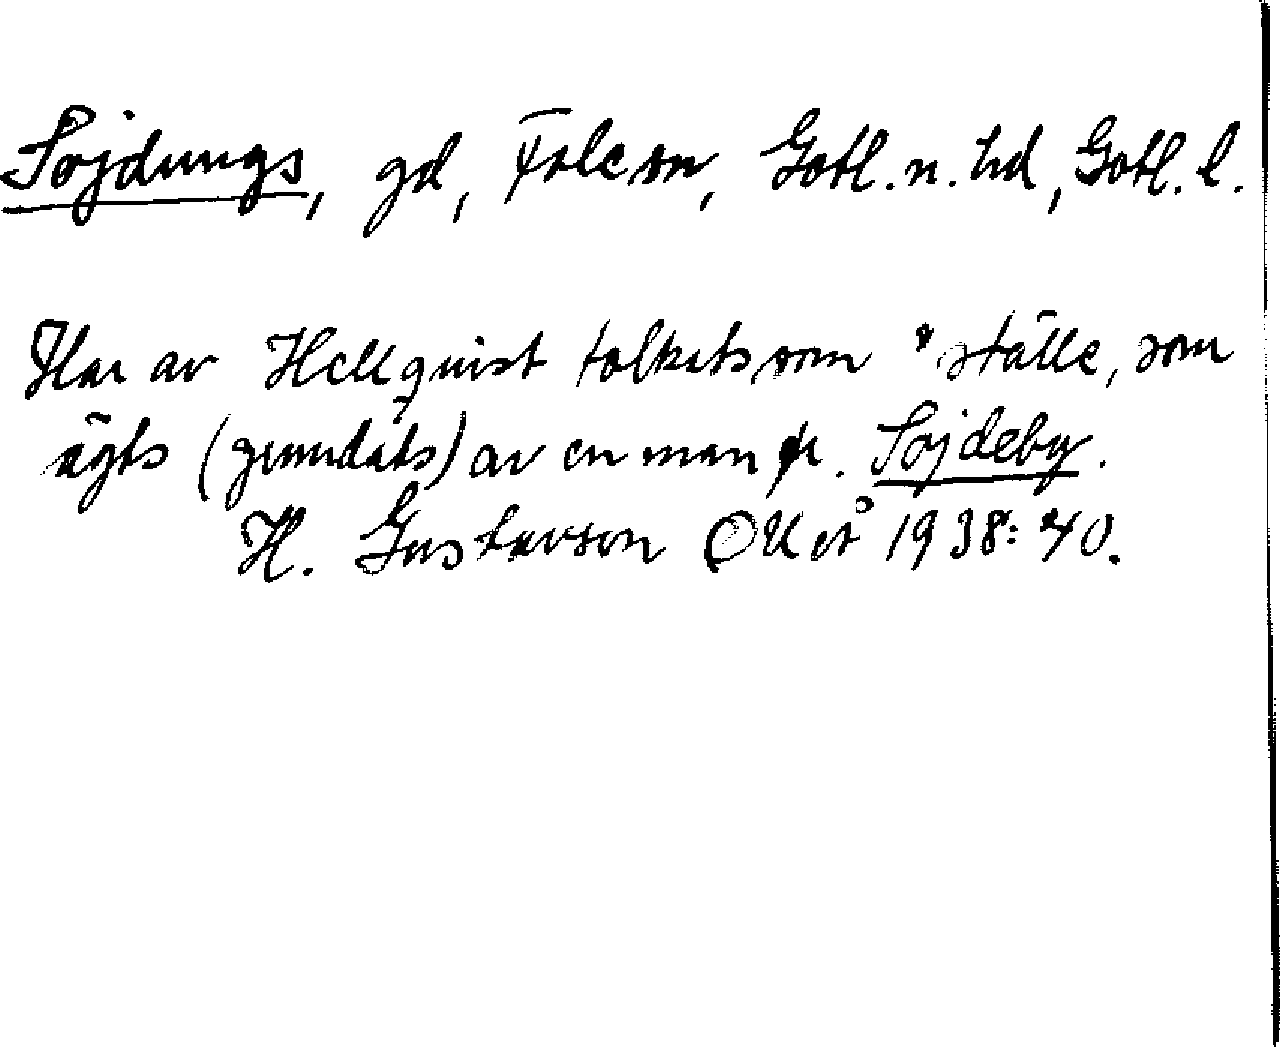 Sojdungs, gd, Fole sn, Gotl. n. hd, Gotl. l.
Har av Hellquist tolkats som "ställe, som
ägts (grundats) av en man fr. Sojdeby.
H. Gustavson 1938: 40.